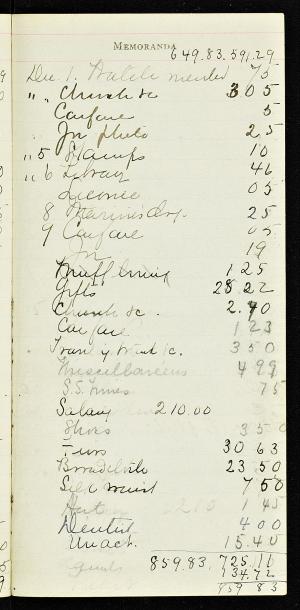 MEMORANDA
649.83. 591.29
Dec 1. Watch mended 75
" " Church &c 3 05
Carfare 5
25
" 5 Stamps 10
" 6 Library 46
Licorice 05
8 25
9 Carfare 05
19
Muff lining 1 25
Gifts 28 22
Church &c. 2.40
Carfare 1 23
3 50
Miscellaneous 4 99
S.S. 75
Salary 210.00
Shoes 3 50
Furs 30 63
Broadcloth 23 50
Silk Waist 7 50
1 45
Dentist 4 00
Unact. 15.40
859.83. 725.16
134.72
859 83